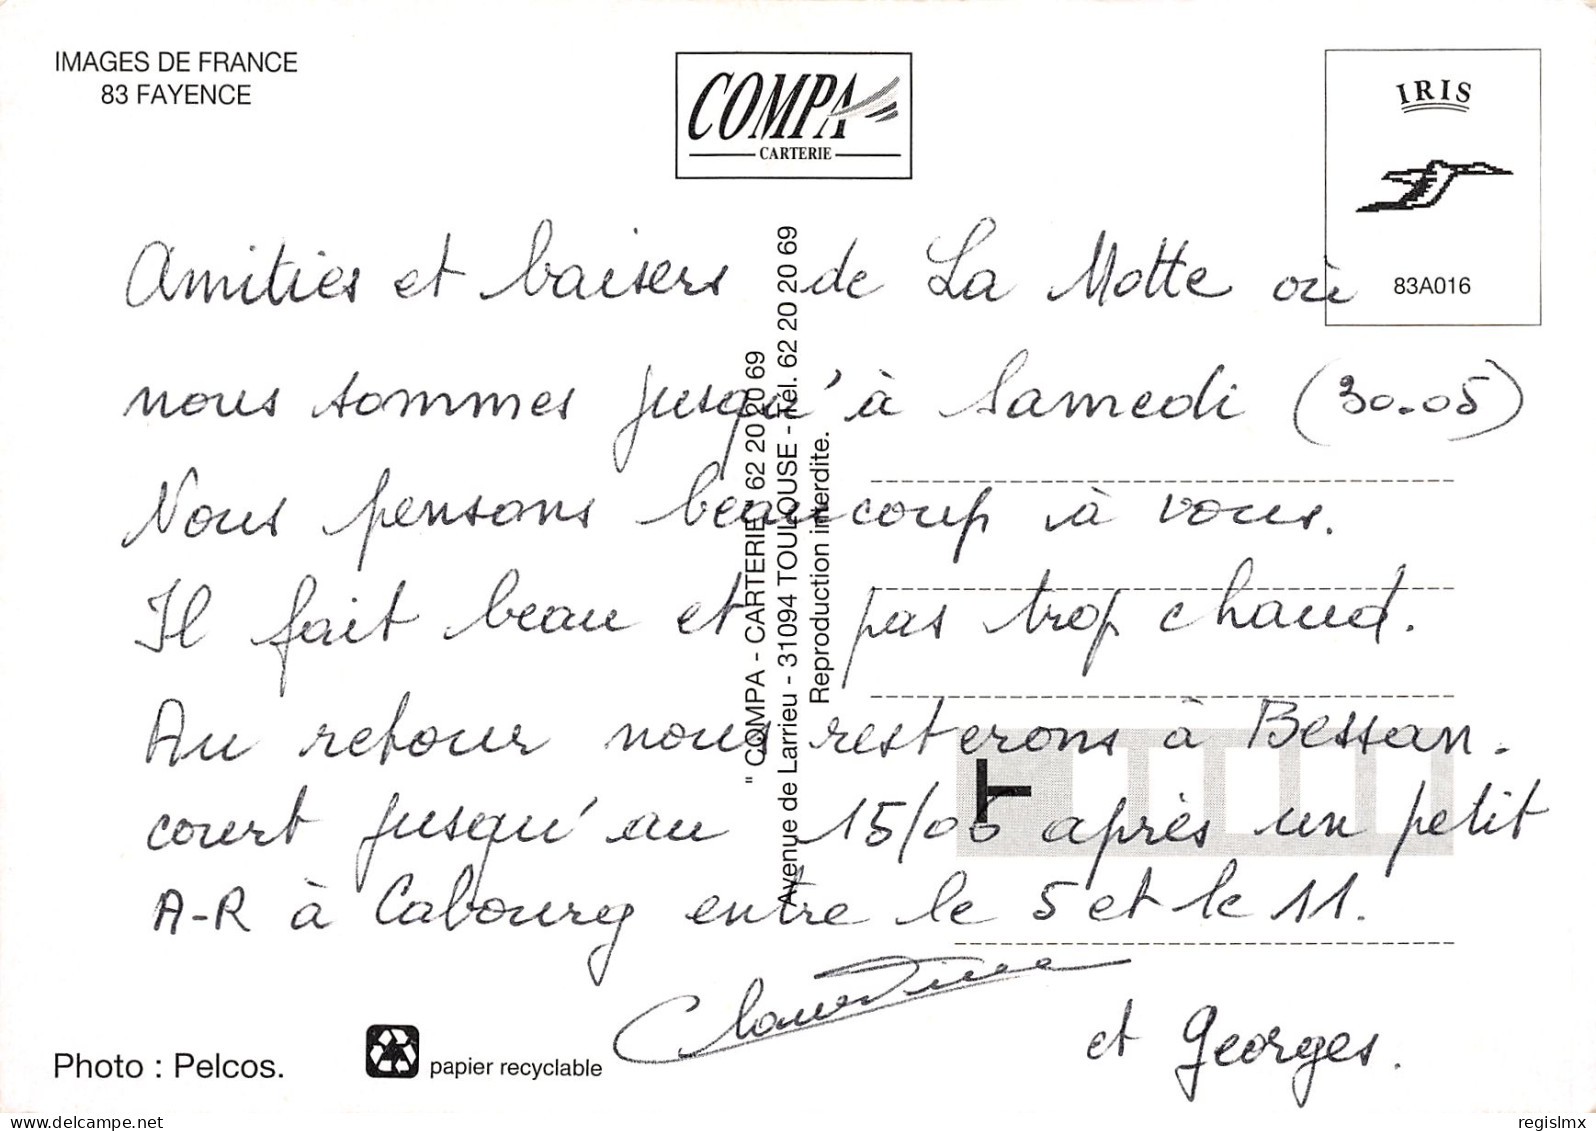 IMAGES DE FRANCE
83 FAYENCE
COMPA
CARTERIE
IRIS
83A016
Amitiés et baisers de La Motte où
nous sommes jusqu'à Samedi (30.05)
Nous pensons beaucoup à vous.
Il fait beau et pas trop chaud.
Au retour nous resterons à Bessan.
court jusqu'au 15/06 après un petit
A-R à Cabourg entre le 5 et le 11.
Claudine
et Georges.
" COMPA - CARTERIE 62 20 20 69
Avenue de Larrieu - 31094 TOULOUSE - Tél. 62 20 20 69
Reproduction interdite.
Photo : Pelcos.
papier recyclable
www.delcampe.net
regislmx